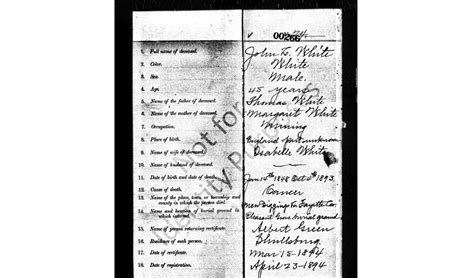 00266
1. Full name of deceased. John T. White
2. Color. White
3. Sex. Male.
4. Age. 45 years
5. Name of the father of deceased. Thomas White
6. Name of the mother of deceased. Margaret White
7. Occupation. Mining
8. Place of birth. England part unknown
9. Name of wife of deceased. Isabelle White
10. Name of husband of deceased.
11. Date of birth and date of death. Jan 14th 1848 Oct 4th 1893.
12. Cause of death. Cancer
13. Name of the place, town, or township and county in which the person died New Diggings Fayette Co
14. Name and location of burial ground in which interred. Pleasant Grove burial ground
15. Name of person returning certificate. Albert Green
16. Residence of such person. Shullsburg.
17. Date of certificate. Mar 15-1894
18. Date of registration. April 23-1894
not for